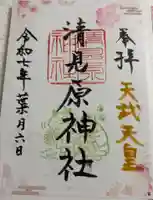 奉拝
天武天皇
清見原神社
令和七年葉月六日